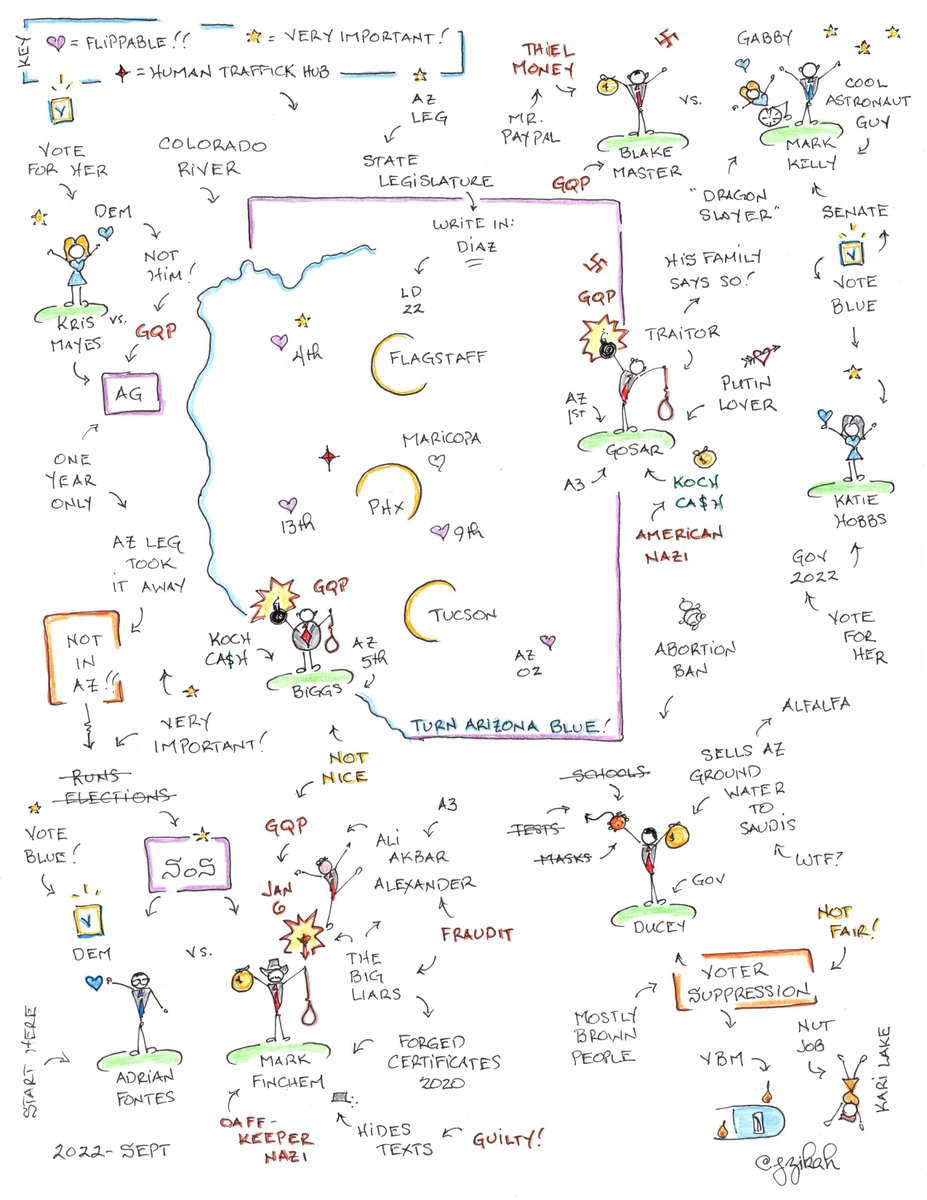 KEY
= FLIPPABLE!!
= VERY IMPORTANT!
= HUMAN TRAFFICK HUB
AZ
LEG
STATE
LEGISLATURE
WRITE IN:
DIAZ
LD
22
THIEL
MONEY
MR.
PAYPAL
GQP
BLAKE
MASTER
VS.
GABBY
MARK
KELLY
COOL
ASTRONAUT
GUY
"DRAGON
SLAYER"
SENATE
V
VOTE
BLUE
V
VOTE
FOR HER
COLORADO
RIVER
DEM
NOT
HIM!
KRIS
MAYES
VS.
GQP
AG
ONE
YEAR
ONLY
AZ LEG
TOOK
IT AWAY
NOT
IN
AZ!!
VERY
IMPORTANT!
RUNS
ELECTIONS
4th
FLAGSTAFF
MARICOPA
PHX
13th
9th
TUCSON
AZ
02
TURN ARIZONA BLUE!
GQP
KOCH
CA$H
AZ
5th
BIGGS
NOT
NICE
HIS FAMILY
SAYS SO!
GQP
TRAITOR
PUTIN
LOVER
AZ
1ST
GOSAR
A3
KOCH
CA$H
AMERICAN
NAZI
KATIE
HOBBS
GOV
2022
VOTE
FOR
HER
ABORTION
BAN
ALFALFA
SELLS AZ
GROUND
WATER
TO
SAUDIS
WTF?
SCHOOLS
TESTS
MASKS
GOV
DUCEY
NOT
FAIR!
VOTER
SUPPRESSION
MOSTLY
BROWN
PEOPLE
VBM
NUT
JOB
KARI LAKE
VOTE
BLUE!
SoS
V
DEM
VS.
START HERE
ADRIAN
FONTES
GQP
JAN
6
A3
ALI
AKBAR
ALEXANDER
FRAUDIT
THE
BIG
LIARS
MARK
FINCHEM
FORGED
CERTIFICATES
2020
OAFF-
KEEPER
NAZI
HIDES
TEXTS
GUILTY!
2022-SEPT
@gzikah